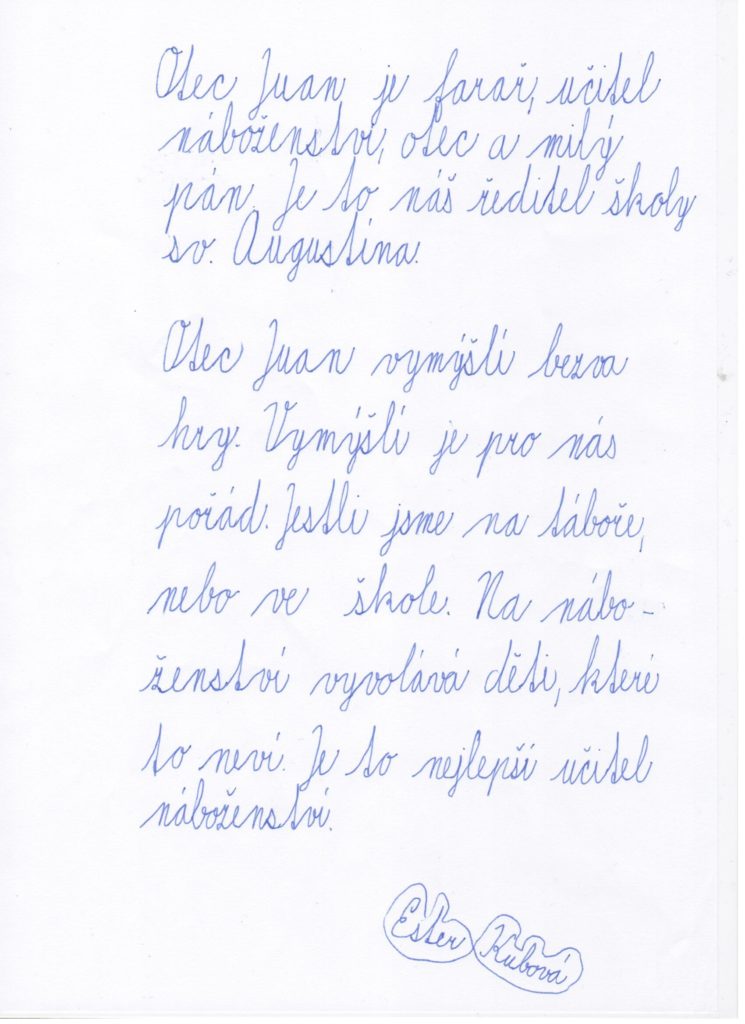 Otec Juan je farář, učitel
náboženství, otec a milý
pán. Je to náš ředitel školy
sv. Augustina.
Otec Juan vymýšlí bezva
hry. Vymýšlí je pro nás
pořád. Jestli jsme na táboře,
nebo ve škole. Na nábo-
ženství vyvolává děti, které
to neví. Je to nejlepší učitel
náboženství.
Ester Kubová